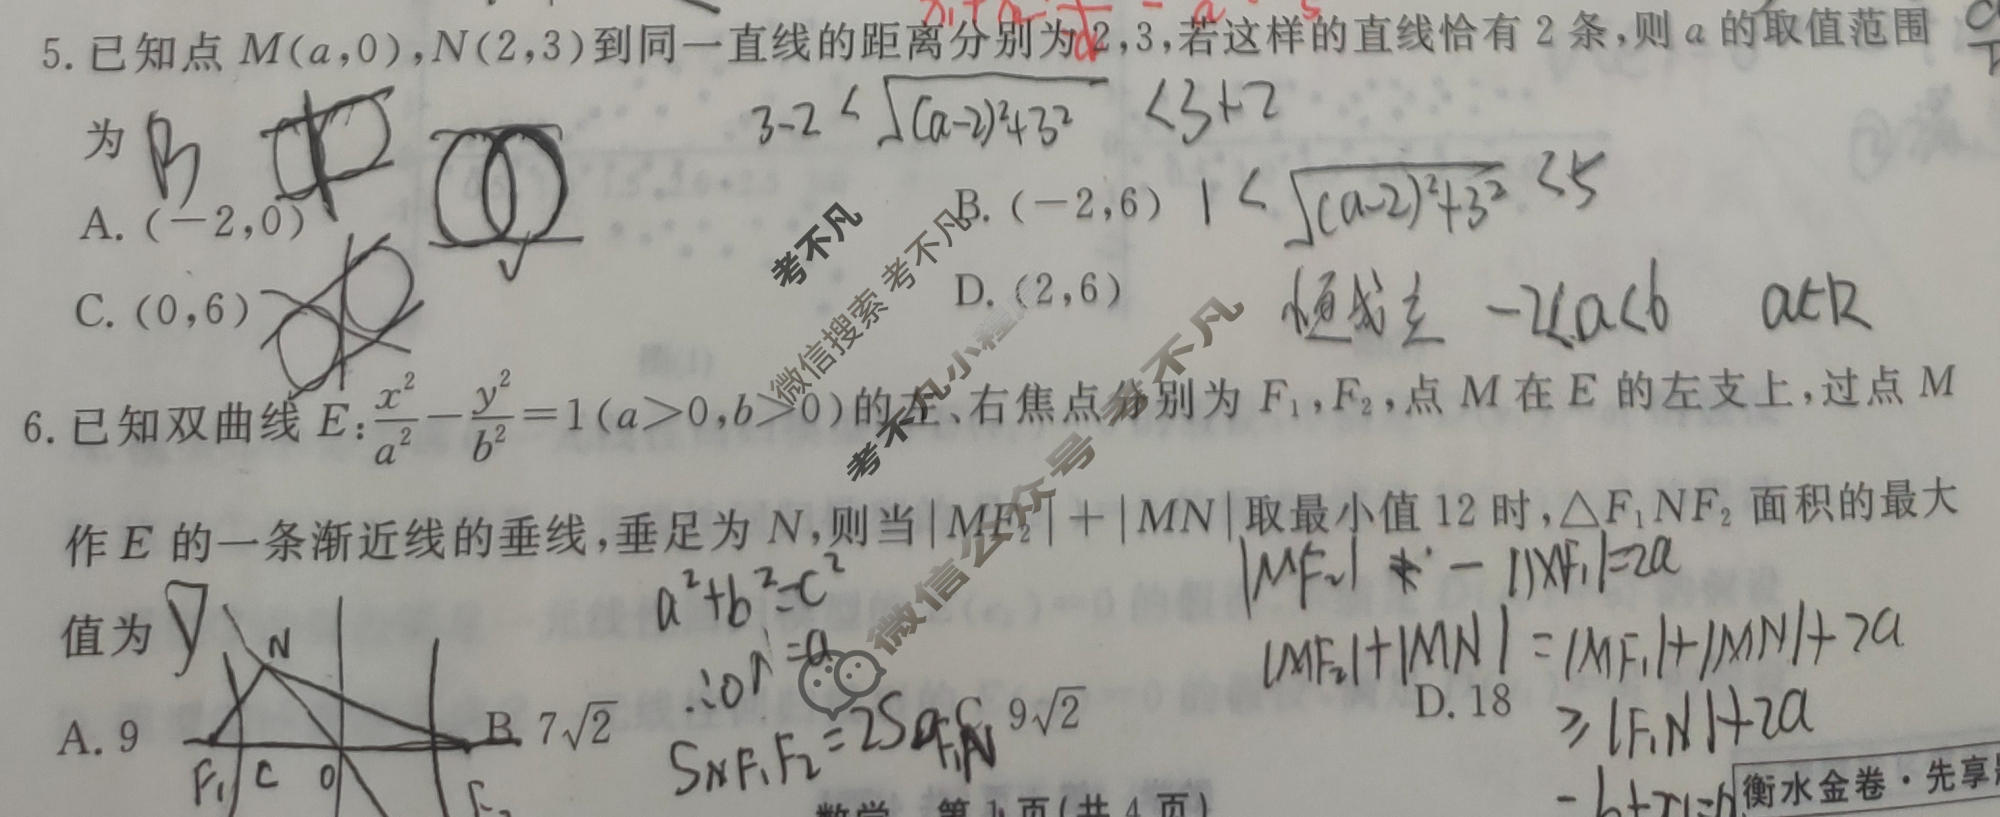 5. 已知点 M(a,0),N(2,3)到同一直线的距离分别为 2,3,若这样的直线恰有 2 条,则 a 的取值范围
为 B
3-2 < √((a-2)²+3²) < 3+2
A. (-2,0)
B. (-2,6)
1 < √((a-2)²+3²) < 5
C. (0,6)
D. (2,6)
恒成立 -2<a<6 a∈R
6. 已知双曲线 E: x²/a² - y²/b² = 1(a>0,b>0)的左、右焦点分别为 F₁,F₂,点 M 在 E 的左支上,过点 M
作 E 的一条渐近线的垂线,垂足为 N,则当|MF₂|+|MN|取最小值 12 时,△F₁NF₂ 面积的最大
值为
a²+b²=c²
|MF₂| - |MF₁|=2a
N
∴ON=a
|MF₂|+|MN| = |MF₁|+|MN|+2a
A. 9
B. 7√2
C. 9√2
D. 18
≥|F₁N|+2a
F₁ C O F₂
S NF₁F₂ = 2S F₁N
数学 第 1 页(共 4 页)
衡水金卷·先享
考不凡
微信搜索 考不凡
考不凡小程
微信公众号 考不凡